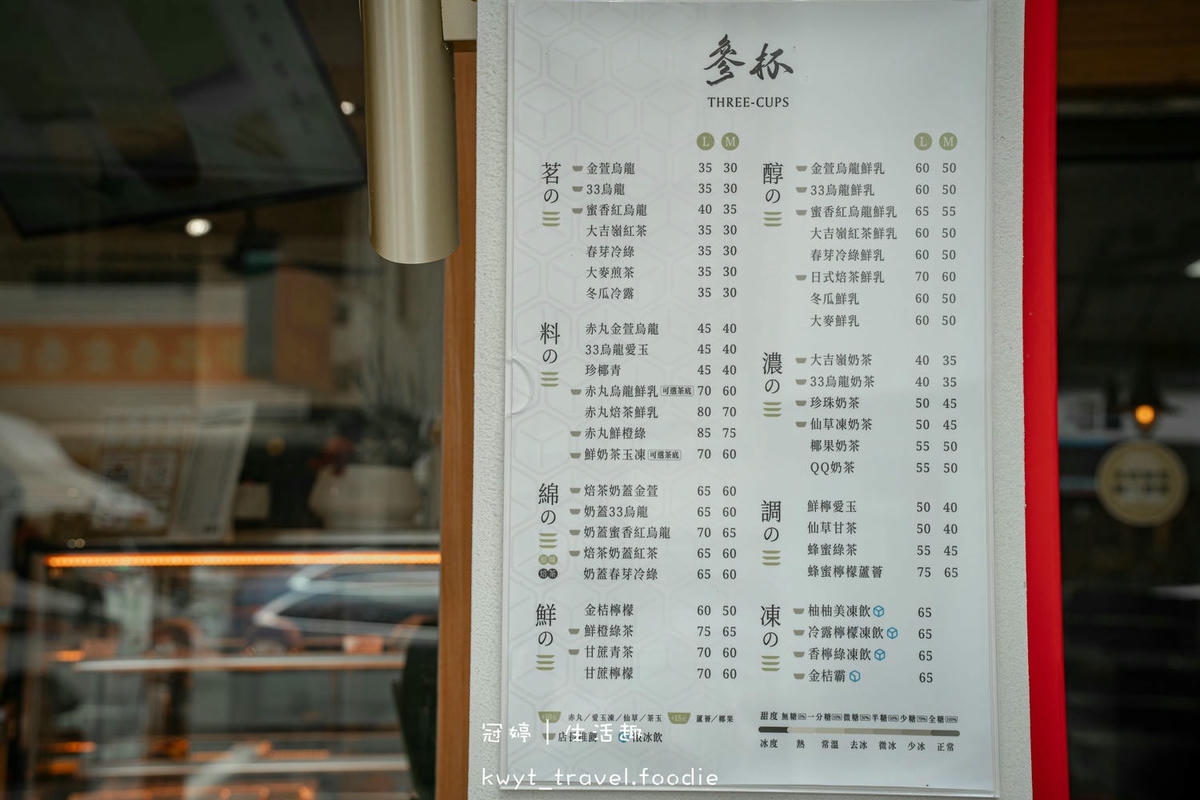 參杯
THREE-CUPS
L M
茗の
金萱烏龍 35 30
33烏龍 35 30
蜜香紅烏龍 40 35
大吉嶺紅茶 35 30
春芽冷綠 35 30
大麥煎茶 35 30
冬瓜冷露 35 30
料の
赤丸金萱烏龍 45 40
33烏龍愛玉 45 40
珍椰青 45 40
赤丸烏龍鮮乳 可選茶底 70 60
赤丸焙茶鮮乳 80 70
赤丸鮮橙綠 85 75
鮮奶茶玉凍 可選茶底 70 60
綿の
原味
焙茶
焙茶奶蓋金萱 65 60
奶蓋33烏龍 65 60
奶蓋蜜香紅烏龍 70 65
焙茶奶蓋紅茶 65 60
奶蓋春芽冷綠 65 60
鮮の
金桔檸檬 60 50
鮮橙綠茶 75 65
甘蔗青茶 70 60
甘蔗檸檬 70 60
L M
醇の
金萱烏龍鮮乳 60 50
33烏龍鮮乳 60 50
蜜香紅烏龍鮮乳 65 55
大吉嶺紅茶鮮乳 60 50
春芽冷綠鮮乳 60 50
日式焙茶鮮乳 70 60
冬瓜鮮乳 60 50
大麥鮮乳 60 50
濃の
大吉嶺奶茶 40 35
33烏龍奶茶 40 35
珍珠奶茶 50 45
仙草凍奶茶 50 45
椰果奶茶 55 50
QQ奶茶 55 50
調の
鮮檸愛玉 50 40
仙草甘茶 50 40
蜂蜜綠茶 55 45
蜂蜜檸檬蘆薈 75 65
凍の
柚柚美凍飲 65
冷露檸檬凍飲 65
香檸綠凍飲 65
金桔霸 65
赤丸／愛玉凍／仙草／茶玉 +15元 蘆薈／椰果
冰飲
甜度 無糖 一分糖 微糖 半糖 少糖 全糖
冰度 熱 常溫 去冰 微冰 少冰 正常
冠婷｜生活趣
kwyt_travel.foodie